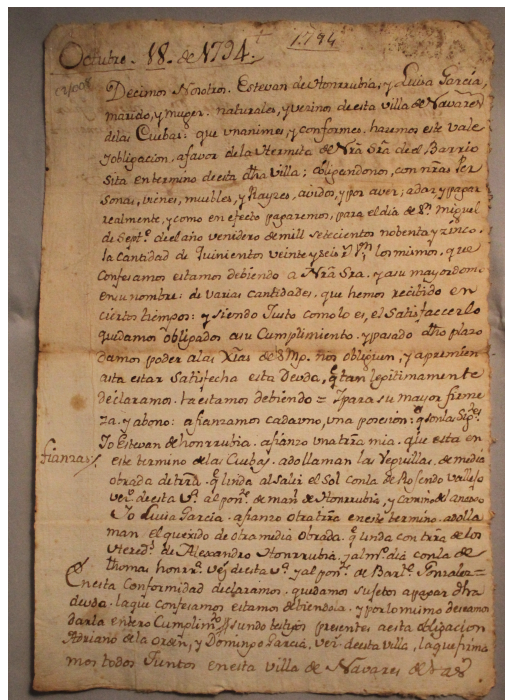 Octubre. 18. de 1794.
1794
Decimos Nosotros. Estevan de Honrrubia, y Luisa García,
marido, y muger. naturales, y vecinos de esta villa de Navares
delas Cuebas: que vnanimes, y conformes, hacemos este vale
y obligacion, a favor de la Vtermita de Nrã Srã de el Barrio
Sita en termino de esta dhã villa; obligendonos, con nrãs Per
sonas, vienes, muebles, y Rayzes, avidos, y por aver; a dar y pagar
realmente, y como en efecto pagaremos, para el dia de Sn Miguel
de Septe. de el año venidero de mill setecientos nobenta y zinco.
la Cantidad de Quinientos veinte y seis rs los mismos, que
Confesamos estamos debiendo a Nrã Srã. y a su mayordomo
en su nombre: de varias cantidades. que hemos recibido en
ciertos tiempos: y siendo Justo como lo es, el Satisfaccerlo
quedamos obligados a su Cumplimiento. y pasado dhõ plazo
damos poder a las de S Mg. nos obliguen, y apremien
asta estar Satisfecha esta Deuda, q tan lepitimamente
declaramos. la estamos debiendo = Y para su mayor firme
za. y abono: afianzamos cada vno, una posesion: q son las Sigtes
Yo Estevan de honrrubia. afianzo vna trrã mia. que esta en
fianzas
este termino de las Cuebas. ado llaman las de media
obrada de trrã. q linda al salir el Sol con la de Rosendo vallejo
vezo. de esta va. al pone. de man de Honrrubia, y Camino
Yo Luisa García. afianzo otra trrã en este termino. ado lla
man el querido de otra midia obrada. q linda con trrã de los
de Alexandro Honrrubia. y al m. dia con la de
thomas honrra. vezo de esta va. y al pone. de Barte. Gonzalez =
En esta Conformidad declaramos. quedamos sujetos a pagar dhã
deuda. la que Confesamos estamos debiendola. y por lo mismo deseamos
darla entero Cumplimto. siendo testigos presentes a esta obligacion
Adriano de la Orden, y Domingo García, vezs. de esta villa, la que firma
mos todos Juntos en esta villa de Navares de las